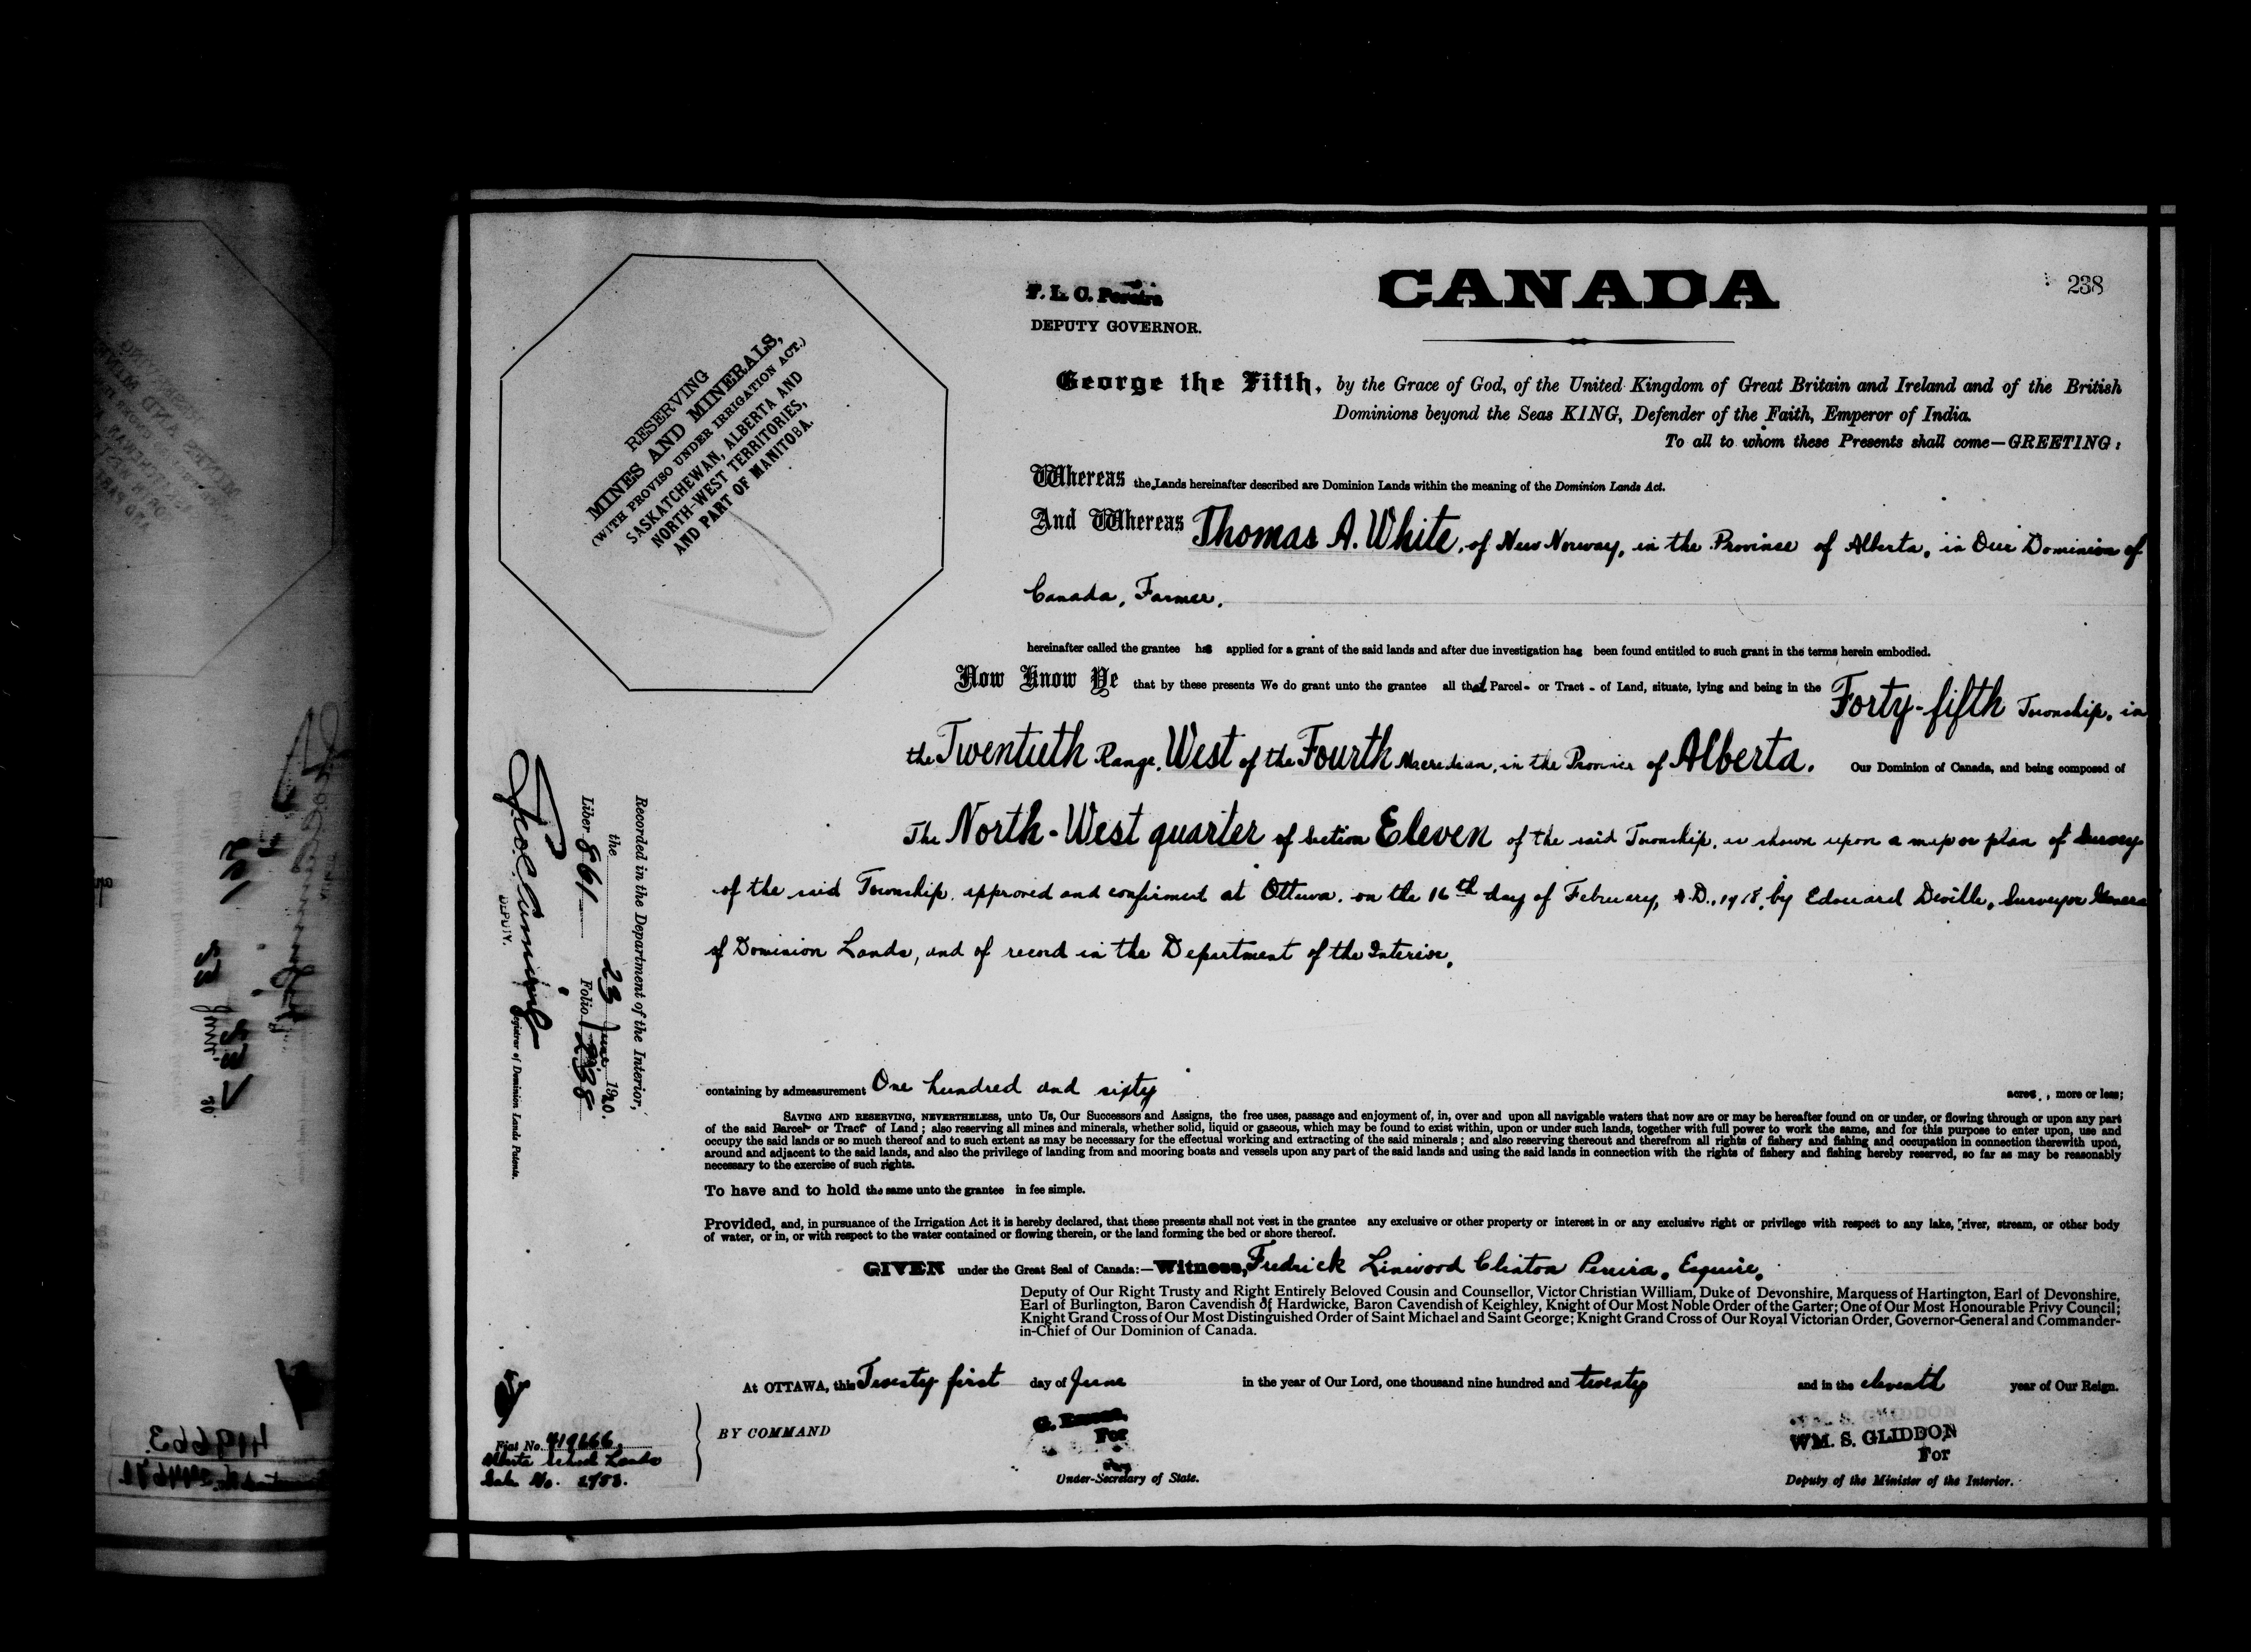 F. L. C. Pereira
DEPUTY GOVERNOR.
CANADA
238
George the Fifth, by the Grace of God, of the United Kingdom of Great Britain and Ireland and of the British
Dominions beyond the Seas KING, Defender of the Faith, Emperor of India.
To all to whom these Presents shall come—GREETING:
RESERVING
MINES AND MINERALS,
(WITH PROVISO UNDER IRRIGATION ACT.)
SASKATCHEWAN, ALBERTA AND
NORTH-WEST TERRITORIES,
AND PART OF MANITOBA.
Whereas the Lands hereinafter described are Dominion Lands within the meaning of the Dominion Lands Act.
And Whereas Thomas A. White, of New Norway, in the Province of Alberta, in Our Dominion of
Canada, Farmer.
hereinafter called the grantee has applied for a grant of the said lands and after due investigation has been found entitled to such grant in the terms herein embodied.
Now Know Ye that by these presents We do grant unto the grantee all that Parcel - or Tract - of Land, situate, lying and being in the Forty-fifth Township, in
the Twentieth Range, West of the Fourth Meridian, in the Province of Alberta. Our Dominion of Canada, and being composed of
The North-West quarter of Section Eleven of the said Township, as shown upon a map or plan of Survey
of the said Township, approved and confirmed at Ottawa, on the 16th day of February, A.D., 1918, by Edouard Deville, Surveyor General
of Dominion Lands, and of record in the Department of the Interior.
containing by admeasurement One hundred and sixty acres, more or less;
SAVING AND RESERVING, NEVERTHELESS, unto Us, Our Successors and Assigns, the free uses, passage and enjoyment of, in, over and upon all navigable waters that now are or may be hereafter found on or under, or flowing through or upon any part
of the said Parcel or Tract of Land; also reserving all mines and minerals, whether solid, liquid or gaseous, which may be found to exist within, upon or under such lands, together with full power to work the same, and for this purpose to enter upon, use and
occupy the said lands or so much thereof and to such extent as may be necessary for the effectual working and extracting of the said minerals; and also reserving thereout and therefrom all rights of fishery and fishing and occupation in connection therewith upon,
around and adjacent to the said lands, and also the privilege of landing from and mooring boats and vessels upon any part of the said lands and using the said lands in connection with the rights of fishery and fishing hereby reserved, so far as may be reasonably
necessary to the exercise of such rights.
To have and to hold the same unto the grantee in fee simple.
Provided, and, in pursuance of the Irrigation Act it is hereby declared, that these presents shall not vest in the grantee any exclusive or other property or interest in or any exclusive right or privilege with respect to any lake, river, stream, or other body
of water, or in, or with respect to the water contained or flowing therein, or the land forming the bed or shore thereof.
GIVEN under the Great Seal of Canada:—Witness, Fredrick Linwood Clinton Pereira, Esquire,
Deputy of Our Right Trusty and Right Entirely Beloved Cousin and Counsellor, Victor Christian William, Duke of Devonshire, Marquess of Hartington, Earl of Devonshire,
Earl of Burlington, Baron Cavendish of Hardwicke, Baron Cavendish of Keighley, Knight of Our Most Noble Order of the Garter; One of Our Most Honourable Privy Council;
Knight Grand Cross of Our Most Distinguished Order of Saint Michael and Saint George; Knight Grand Cross of Our Royal Victorian Order, Governor-General and Commander-
in-Chief of Our Dominion of Canada.
At OTTAWA, this Twenty first day of June in the year of Our Lord, one thousand nine hundred and twenty and in the eleventh year of Our Reign.
BY COMMAND
For
Under-Secretary of State.
WM. S. GLIDDON
WM. S. GLIDDON
For
Deputy of the Minister of the Interior.
Recorded in the Department of the Interior,
the 23 June 1920.
Liber 861 Folio 238
DEPUTY. Registrar of Dominion Lands Patents.
Fiat No. 419666
Alberta School Lands
Sale No. 2783.
419663